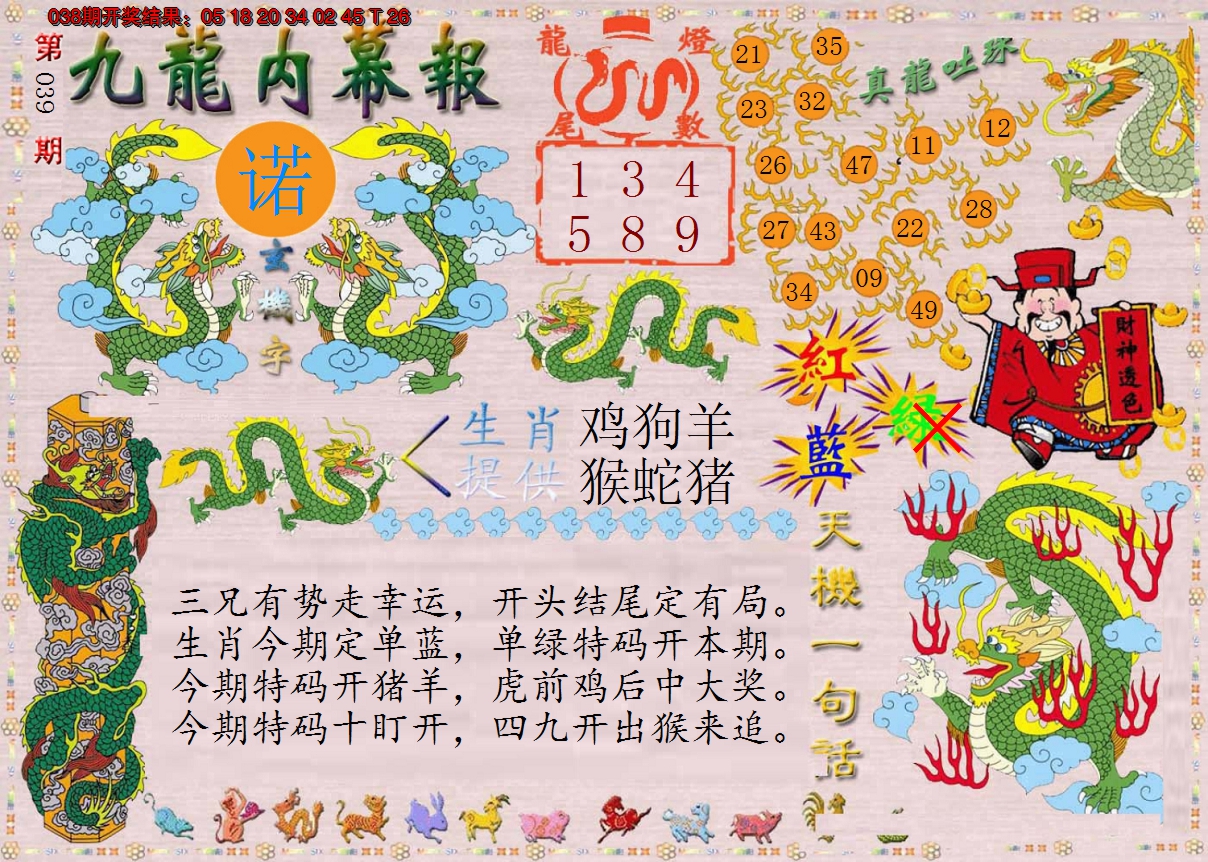 038期开奖结果：05 18 20 34 02 45 T 26
第039期
九龍内幕報
诺
玄機字
龍燈尾數
1 3 4
5 8 9
真龍吐珠
21
35
23
32
26
47
11
12
27
43
22
28
34
09
49
紅
綠
藍
財神透色
生肖提供
鸡狗羊
猴蛇猪
天機一句话
三兄有势走幸运，开头结尾定有局。
生肖今期定单蓝，单绿特码开本期。
今期特码开猪羊，虎前鸡后中大奖。
今期特码十盯开，四九开出猴来追。